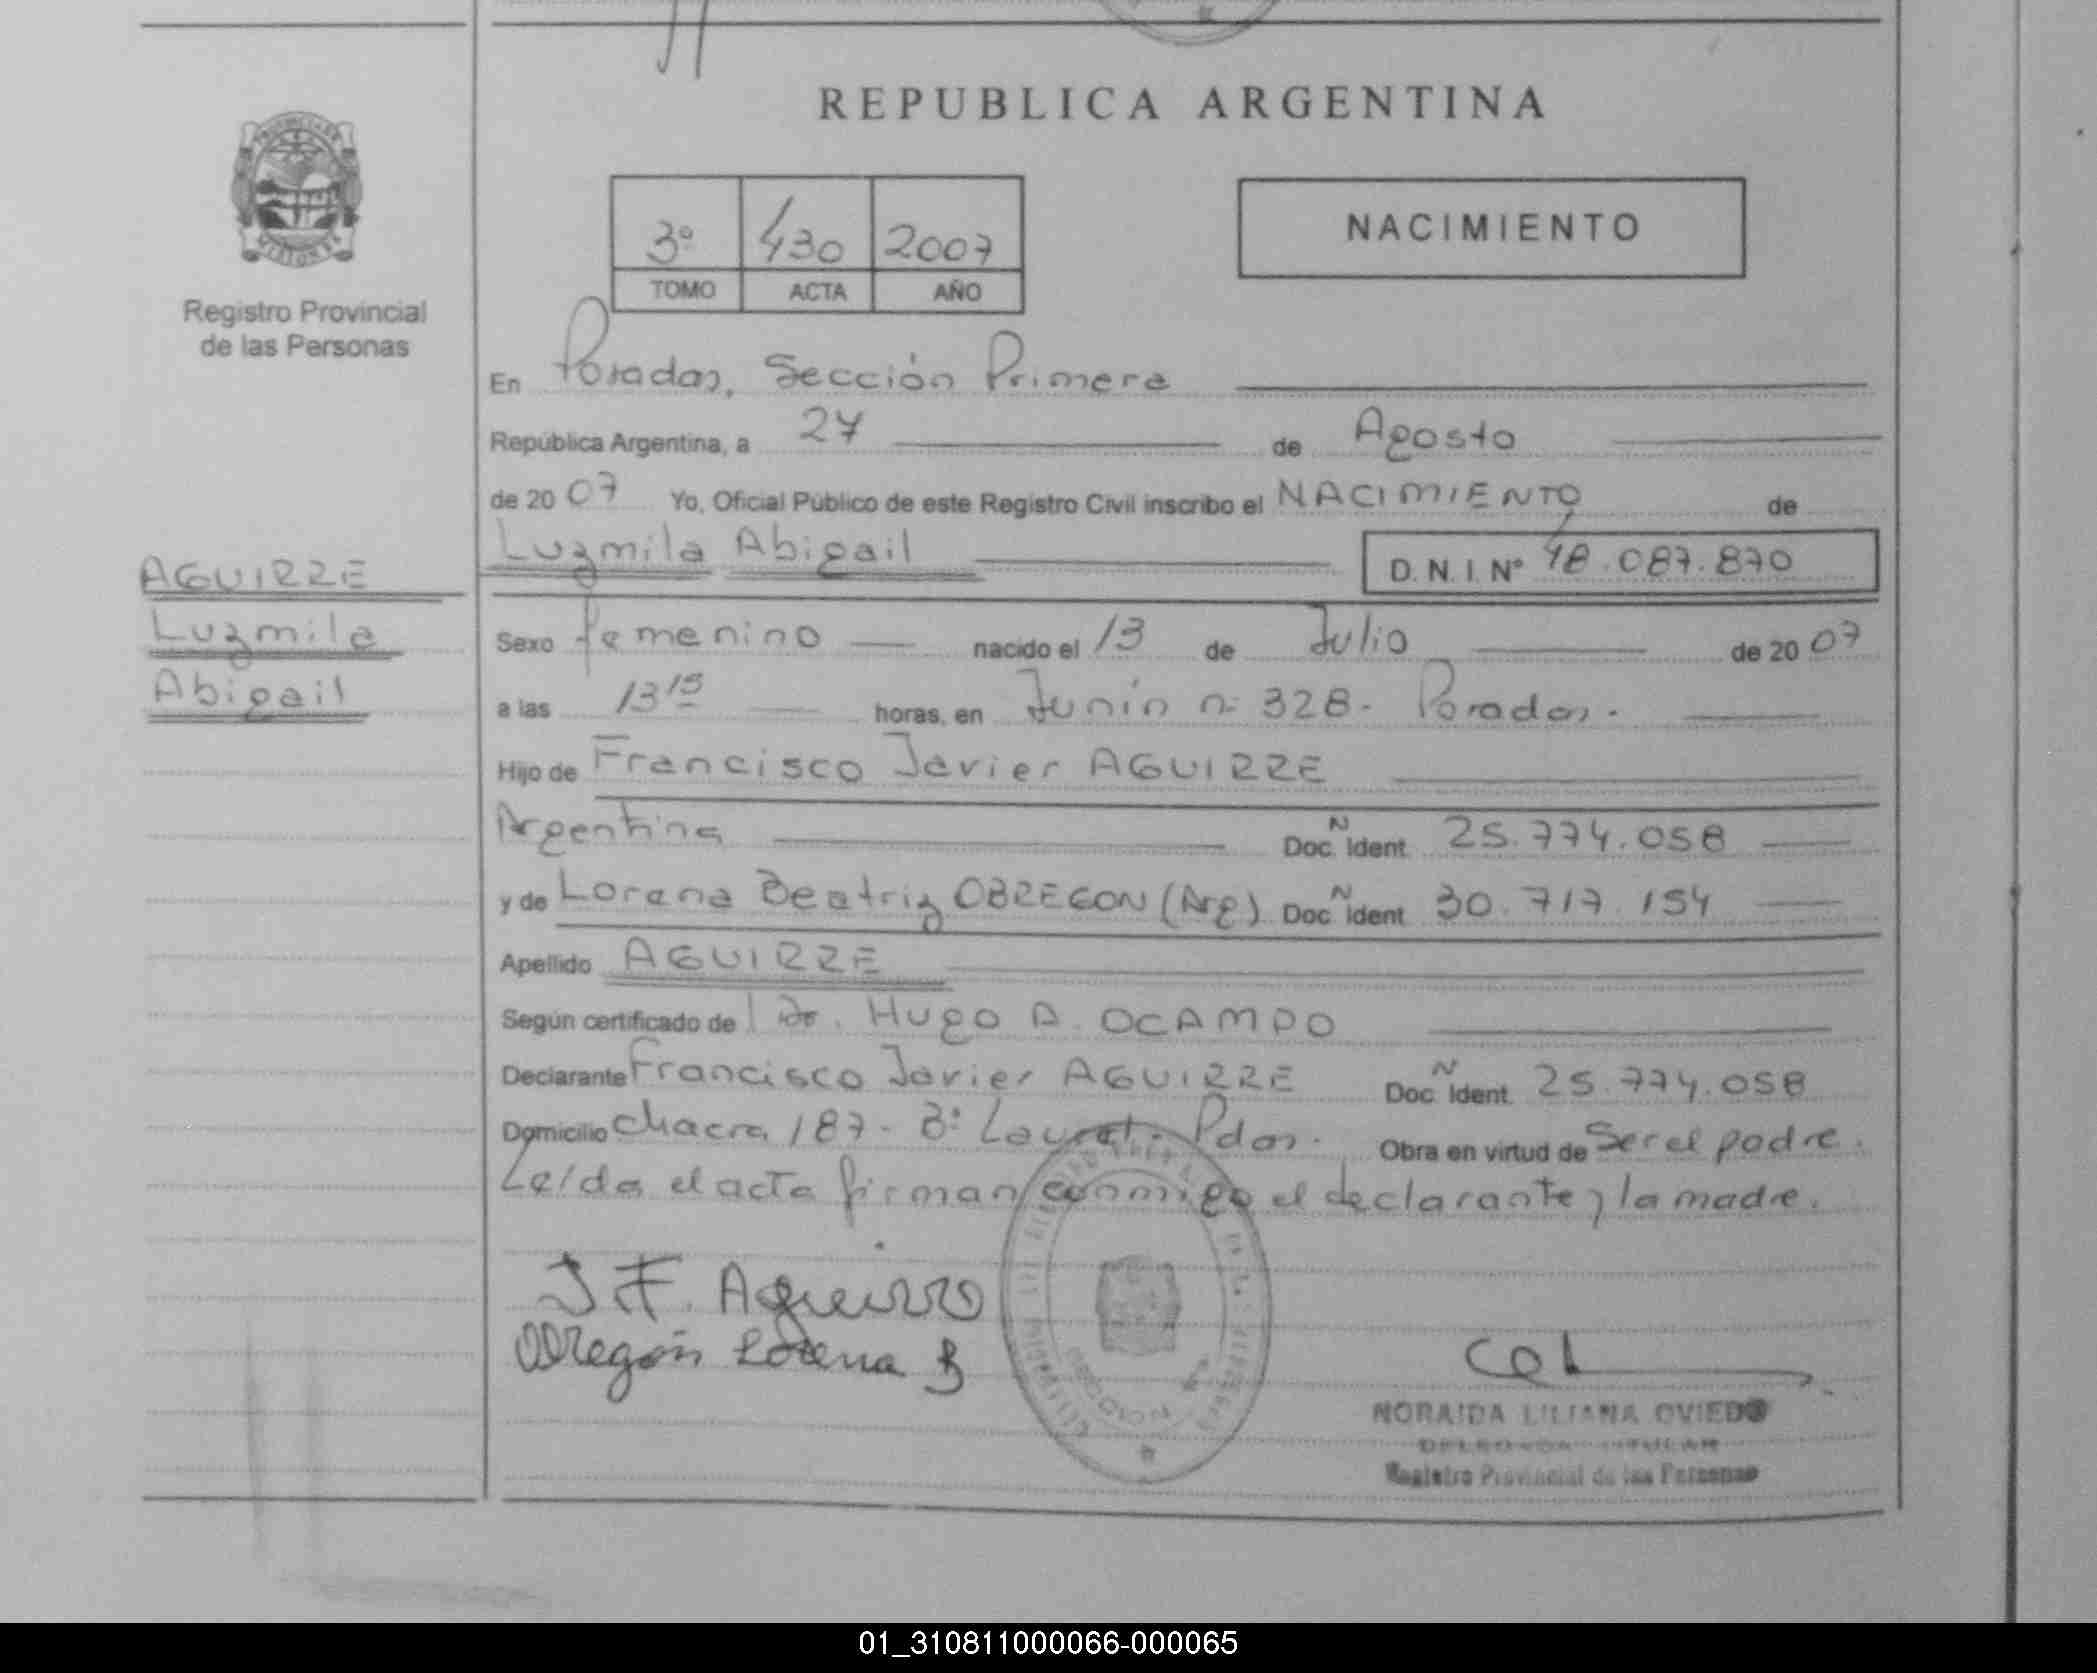 REPUBLICA ARGENTINA
Registro Provincial
de las Personas
3º 430 2007
TOMO ACTA AÑO
NACIMIENTO
En Posadas, Sección Primera
República Argentina, a 27 de Agosto
de 2007 Yo, Oficial Público de este Registro Civil inscribo el NACIMIENTO de
Luzmila Abigail D.N.I. Nº 48.087.870
AGUIRRE
Luzmila
Abigail
Sexo femenino nacido el 13 de Julio de 2007
a las 13 15 horas, en Junín nº 328. Posadas.
Hijo de Francisco Javier AGUIRRE
Argentina Doc. Ident. N 25.774.058
y de Lorena Beatriz OBREGON (Arg) Doc. Ident. N 30.717.154
Apellido AGUIRRE
Según certificado de Dr. Hugo A. OCAMPO
Declarante Francisco Javier AGUIRRE Doc. Ident. N 25.774.058
Domicilio Chacra 187 - Bº Pdas. Obra en virtud de Ser el padre.
Leída el acta firman conmigo el declarante y la madre.
J F. Aguirre
Obregón Lorena B
NORAIDA LILIANA OVIEDO
DELEGADA TITULAR
Registro Provincial de las Personas
01_310811000066-000065